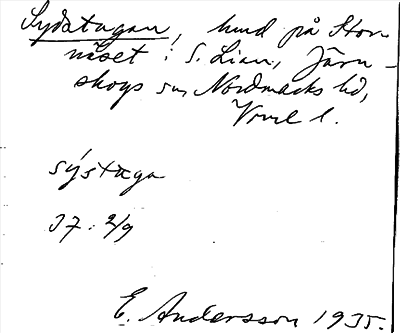 Sydstugan, hund på Stor
näset i S. Lian, Järn-
skogs sn, Nordmarks hd,
Vrml l.
sýstuga
37: 2/9
E. Andersson 1935.